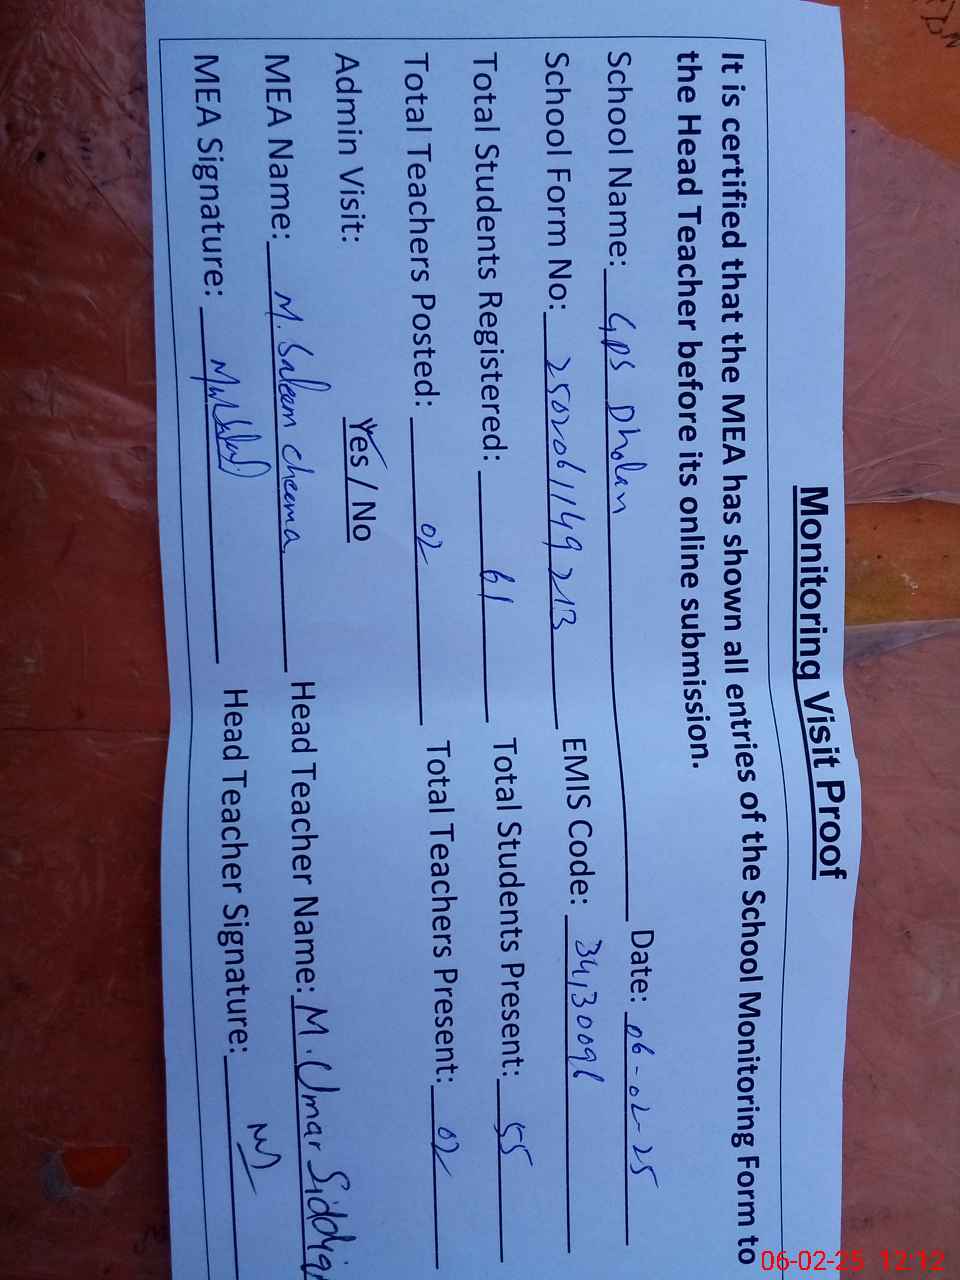 Monitoring Visit Proof
It is certified that the MEA has shown all entries of the School Monitoring Form to
the Head Teacher before its online submission.
School Name: GPS Dholan Date: 06-02-25
School Form No: 2502061149213 EMIS Code:
Total Students Registered: 61 Total Students Present: 55
Total Teachers Posted: 02 Total Teachers Present: 02
Admin Visit: Yes / No
MEA Name: M. Saleem Cheema Head Teacher Name: M. Umar
MEA Signature: Head Teacher Signature:
06-02-25 12:12